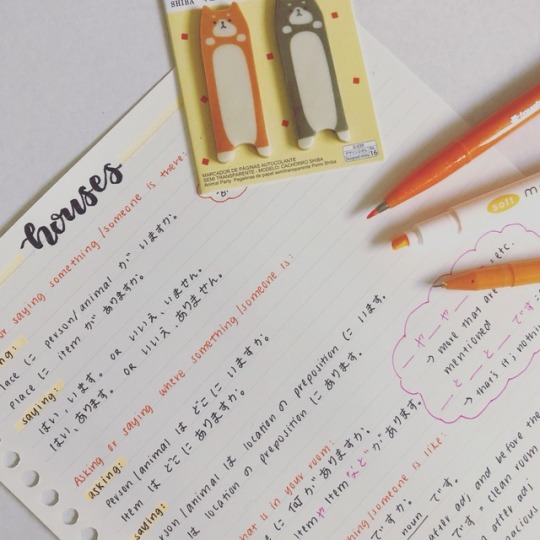 SHIBA
MARCADOR DE PÁGINAS AUTOCOLANTE
SEMI TRANSPARENTE - MODELO: CACHORRO SHIBA
16
houses
or saying something/someone is there:
place に person/animal が いますか。
place に item が ありますか。
saying:
はい、います。 OR いいえ、いません。
はい、あります。 OR いいえ、ありません。
Asking or saying where something/someone is:
asking:
person/animal は どこに いますか。
item は どこに ありますか。
saying:
person/animal は location の preposition に います。
は location の preposition に あります。
what is in your room:
に 何が ありますか。
item や item などが あります。
something/someone is like:
ですか。
noun です。
after adj and before the
です = clean room
after adj
soft
ーやー = etc.
→ more that are
mentioned
ーとーと ー です
→ that's it